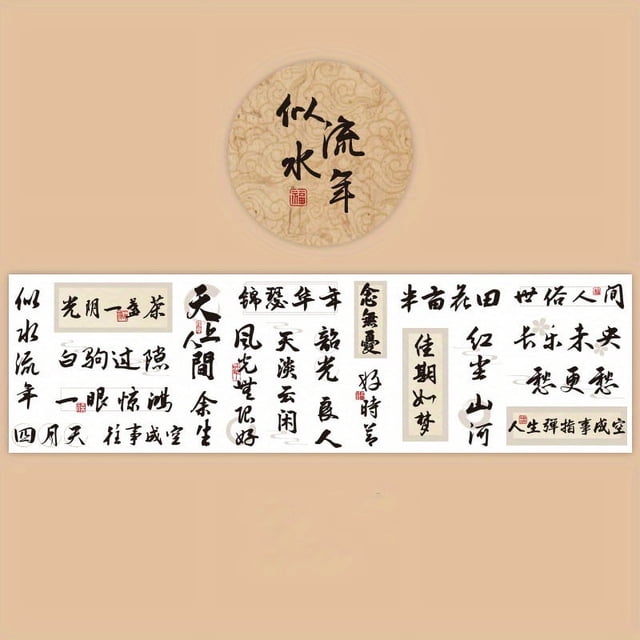 似水
流年
福
似水流年
光阴一盏茶
白驹过隙
一眼惊鸿
四月天
往事成空
天上人間
余生
锦瑟华年
风光無限好
天淡云闲
韶光良人
念無憂
好時节
半亩花田
佳期如梦
红尘山河
世俗人间
长乐未央
愁更愁
人生彈指事成空